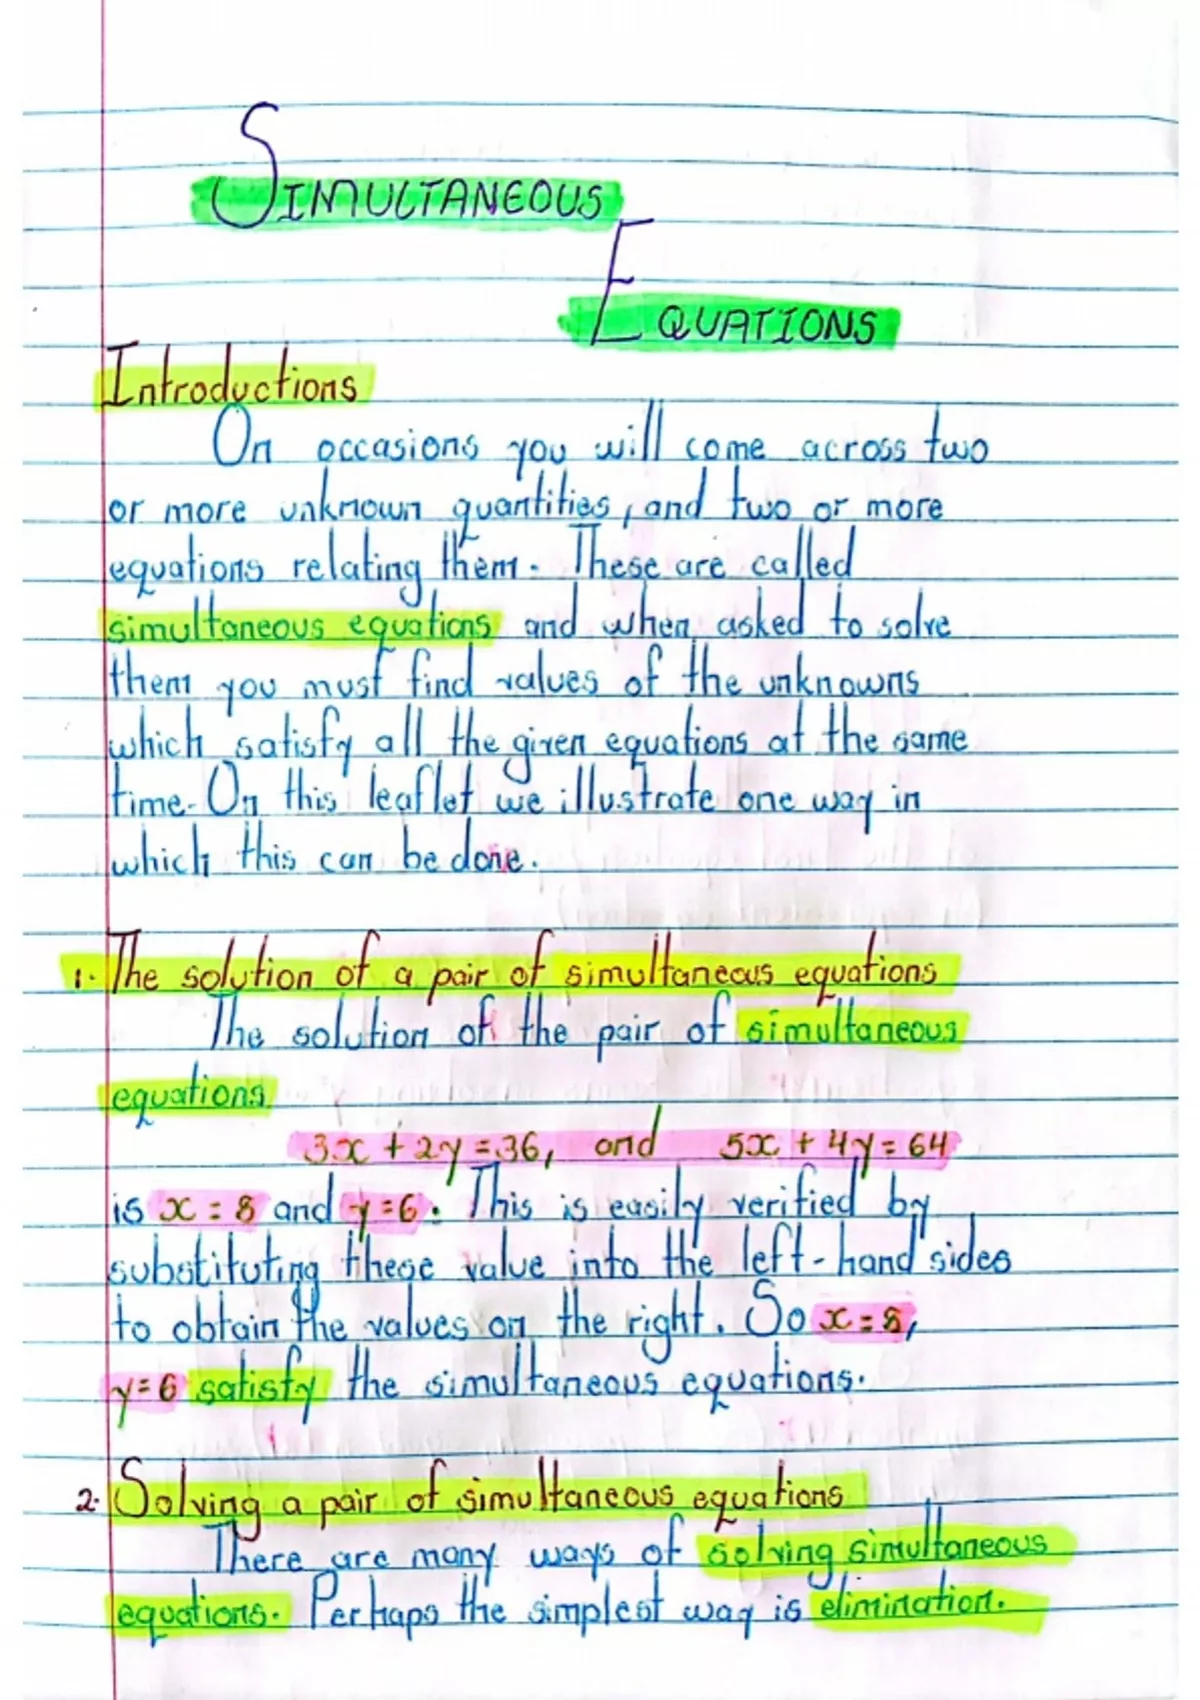 SIMULTANEOUS
EQUATIONS
Introductions
On occasions you will come across two
or more unknown quantities, and two or more
equations relating them. These are called
simultaneous equations and when asked to solve
them you must find values of the unknowns
which satisfy all the given equations at the same
time. On this leaflet we illustrate one way in
which this can be done.
1. The solution of a pair of simultaneous equations
The solution of the pair of simultaneous
equations
3x + 2y = 36, and 5x + 4y = 64
is x = 8 and y = 6. This is easily verified by
substituting these value into the left-hand sides
to obtain the values on the right. So x = 8,
y = 6 satisfy the simultaneous equations.
2. Solving a pair of simultaneous equations
There are many ways of solving simultaneous
equations. Perhaps the simplest way is elimination.